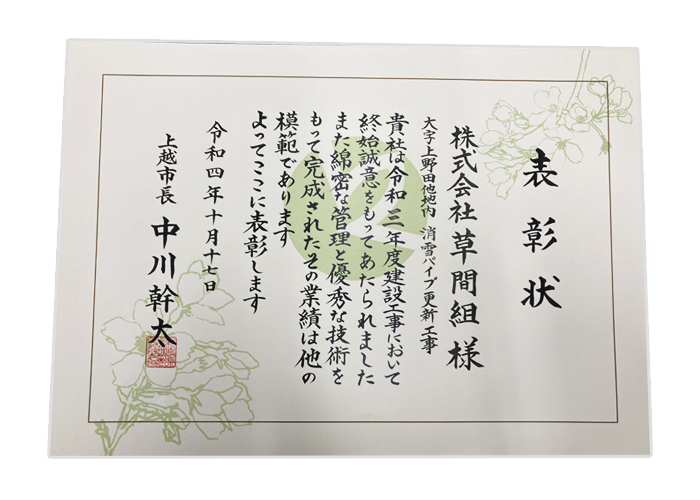 表彰状
株式会社草間組様
大字上野田他地内 消雪パイプ更新工事
貴社は令和三年度建設工事において
終始誠意をもってあたられました
また綿密な管理と優秀な技術を
もって完成されたその業績は他の
模範であります
よってここに表彰します
令和四年十月十七日
上越市長 中川幹太